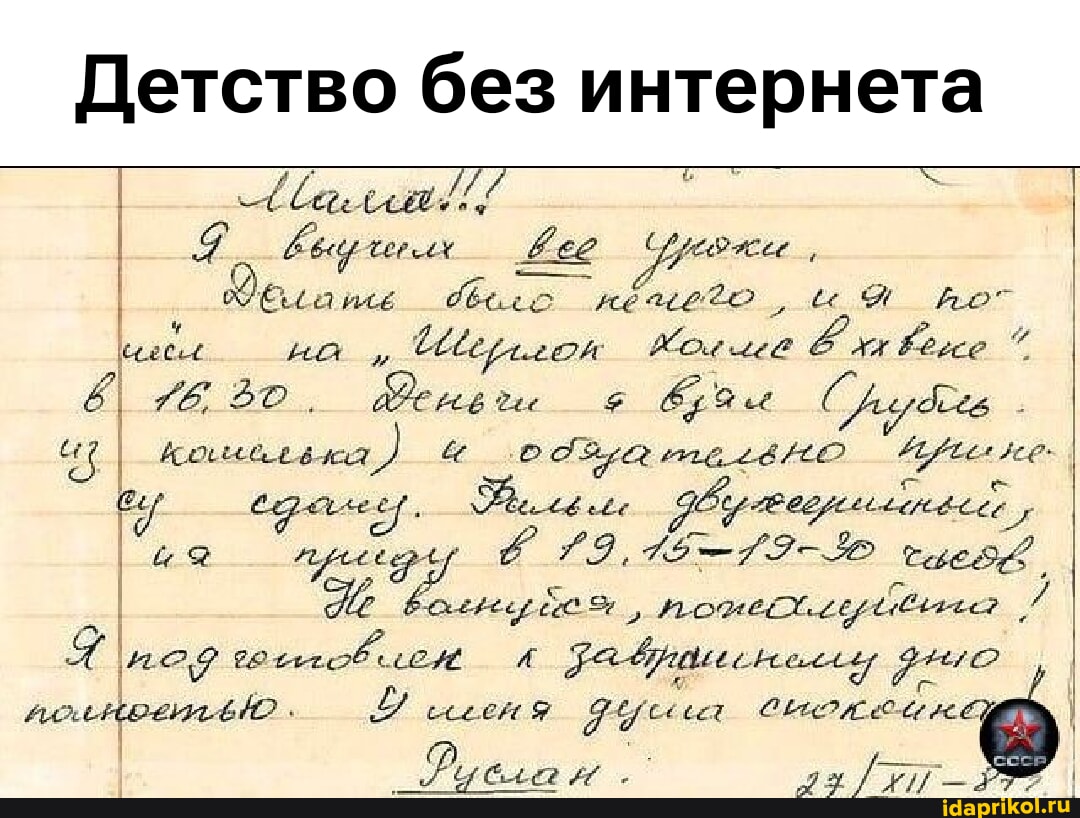 Детство без интернета
Мама!!!
Я выучил все уроки.
Делать было нечего, и я по-
шёл на „Шерлок Холмс в хх веке".
в 16.30. Деньги я взял (рубль
из кошелька) и обязательно прине-
су сдачу. Фильм двухсерийный,
и я приду в 19.15–19-30 часов.
Не волнуйся, пожалуйста!
Я подготовлен к завтрашнему дню
полностью. У меня душа спокойна!
Руслан.
27/XII–87г.
СССР
idaprikol.ru